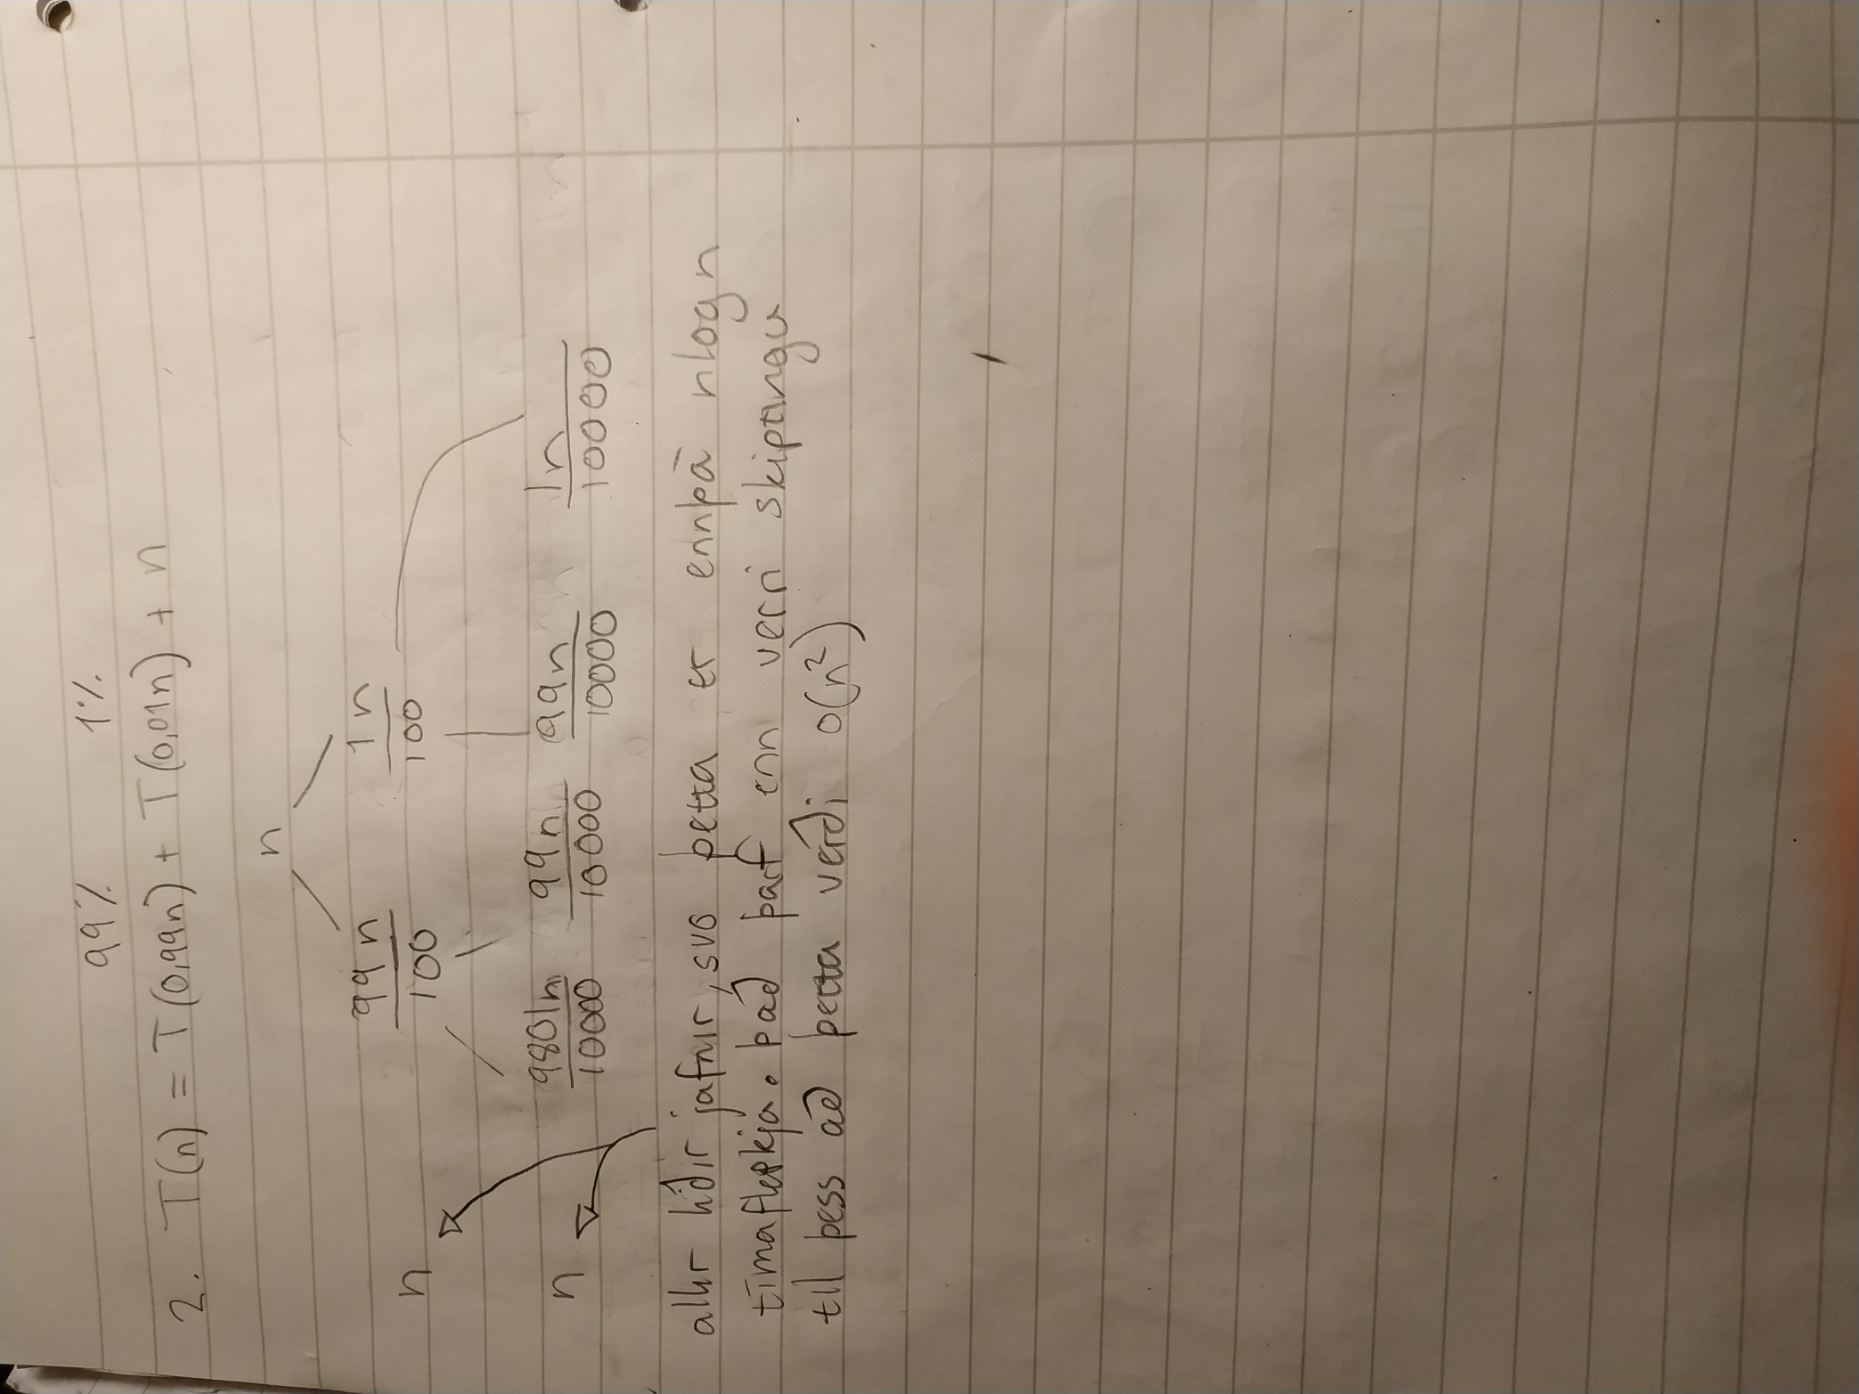 99% 1%
2. T(n) = T(0,99n) + T(0,01n) + n
n
n 99n/100 1n/100
n 9801n/10000 99n/10000 99n/10000 1n/10000
allir liðir jafnir, svo þetta er ennþá nlogn
tímaflækja. það þarf enn verri skiptingu
til þess að þetta verði O(n²)